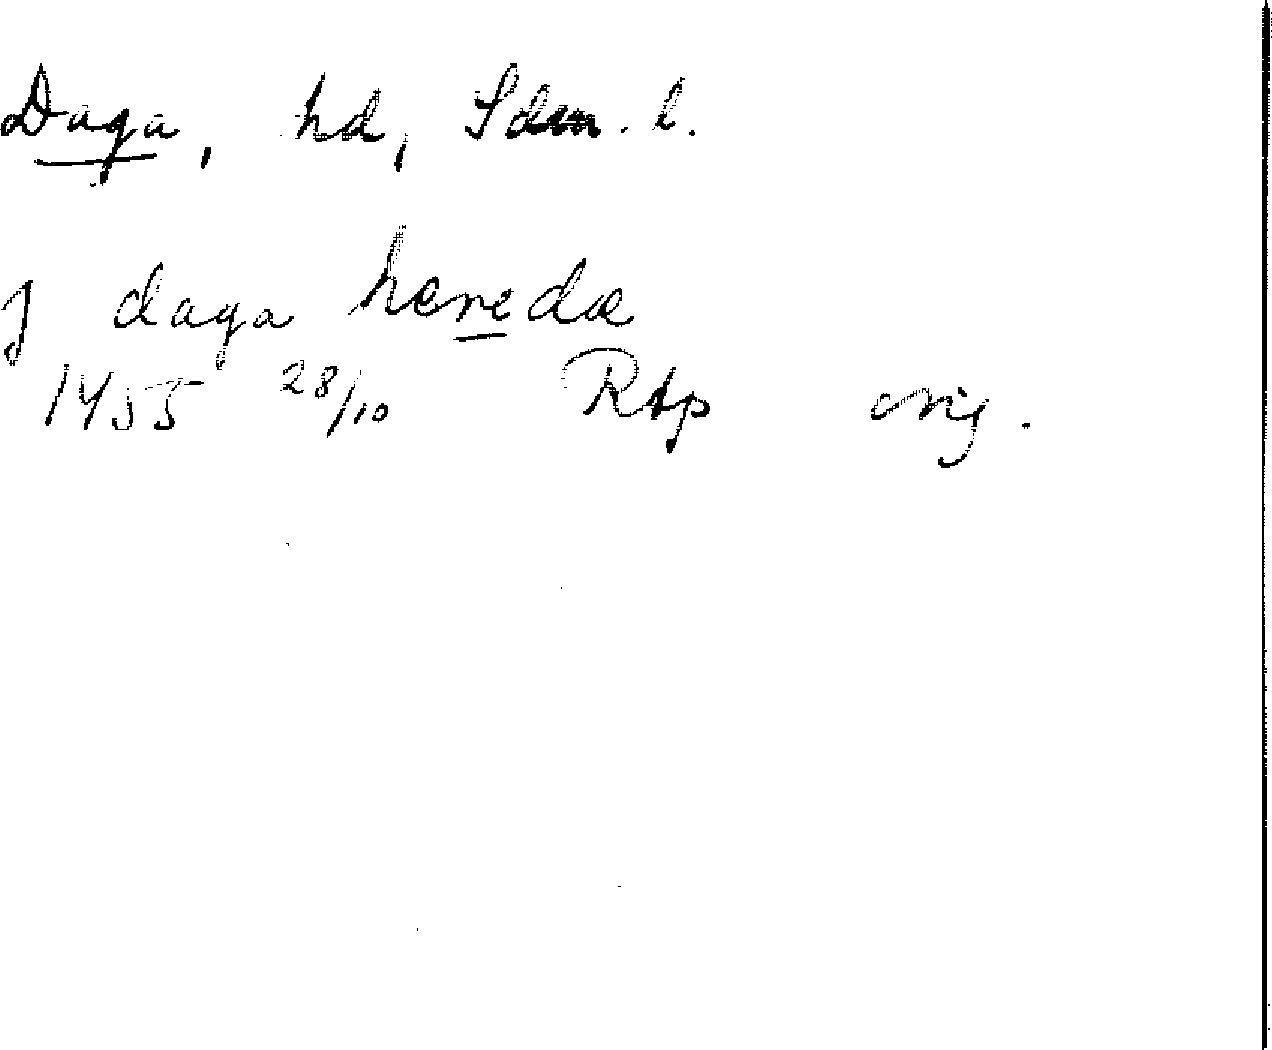 Daga, hd, Sdm. l.
J daga hæredæ
1455 28/10 Rtp orig.